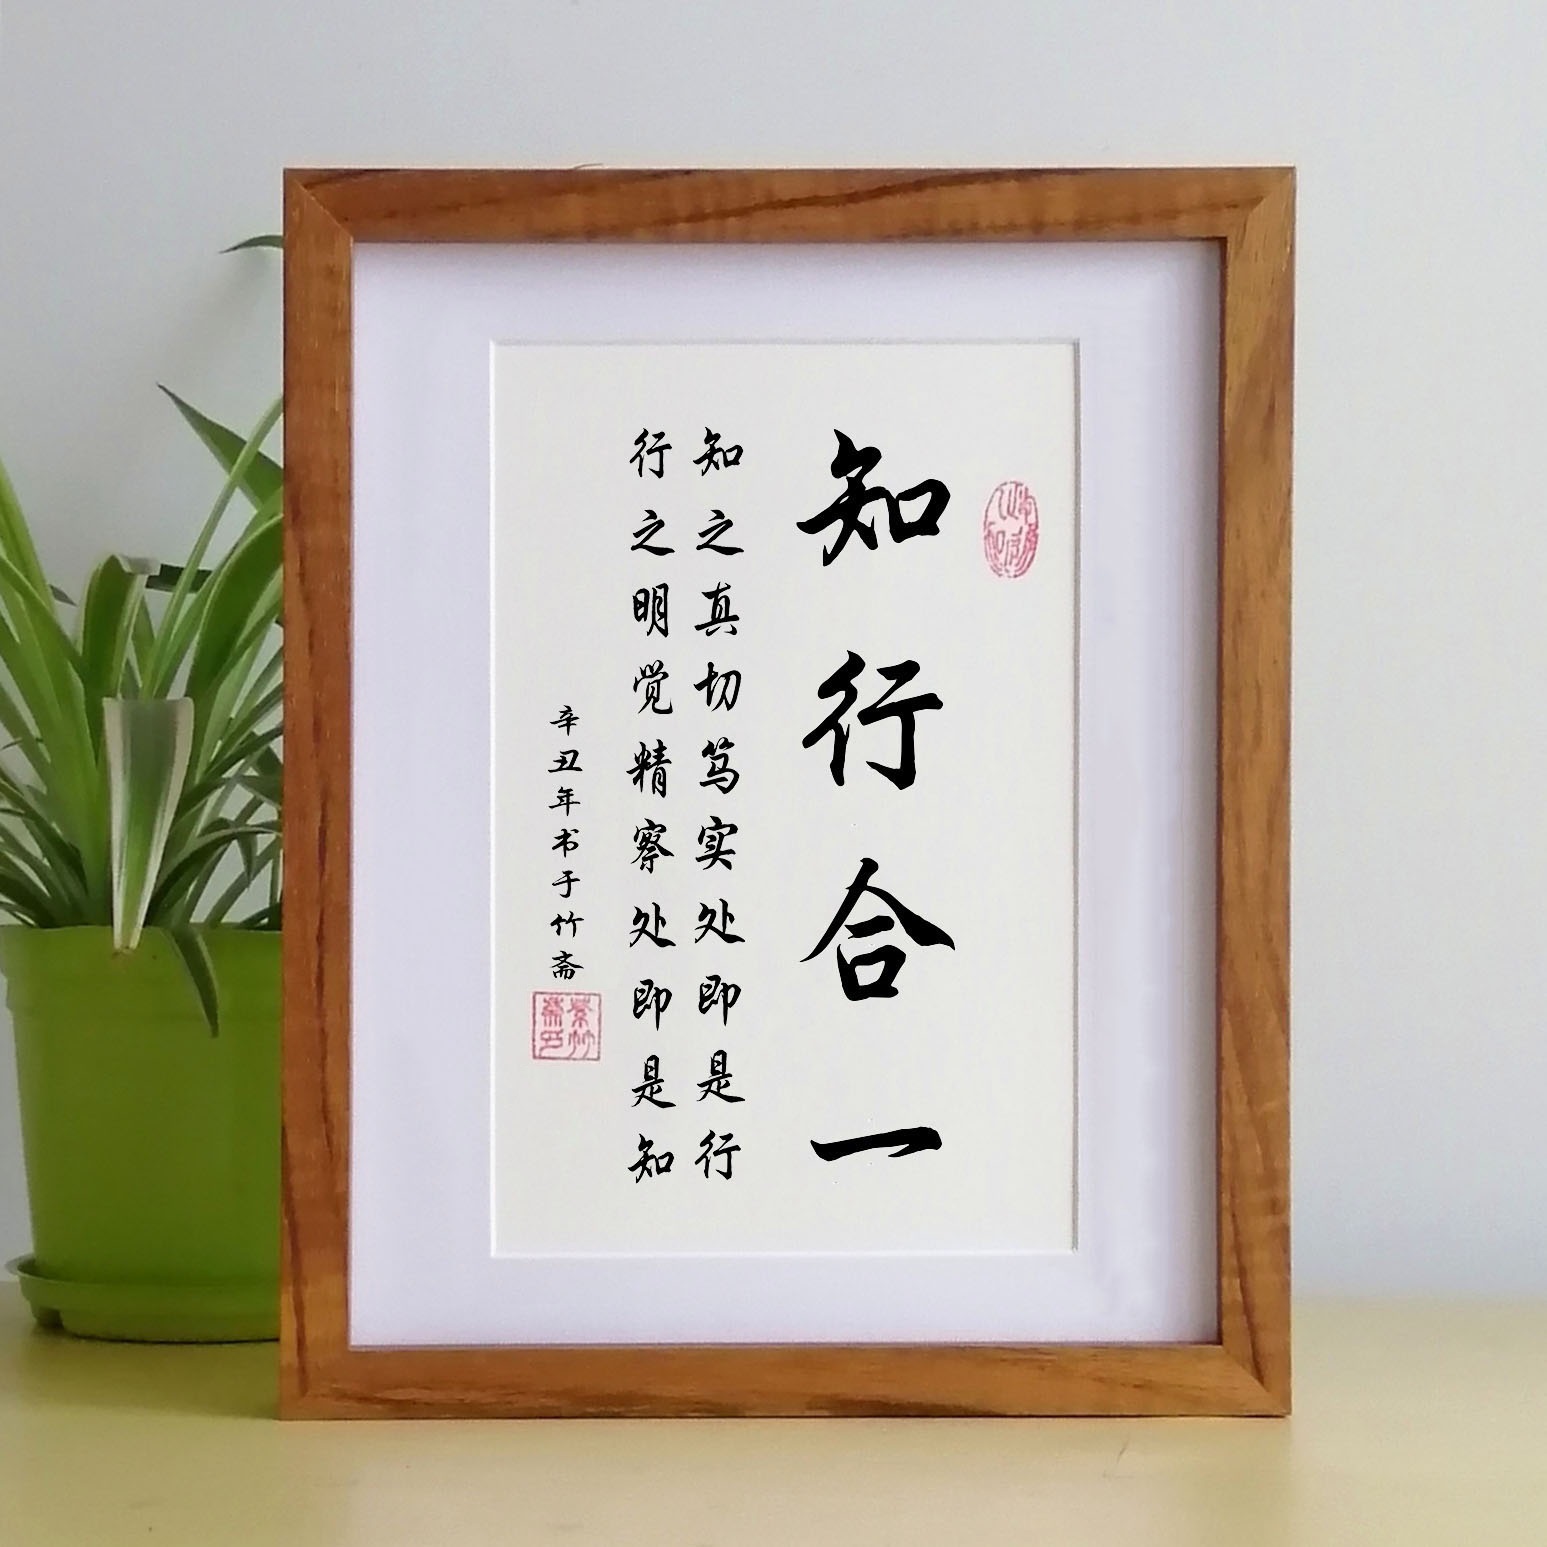 知行合一
知之真切笃实处即是行
行之明觉精察处即是知
辛丑年书于竹斋
紫竹斋印